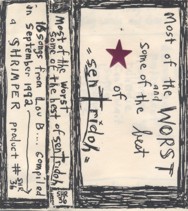 Most of the WORST
and
some of the best
of
"sentridoh"
Most of the worst
some of the best of sentridoh
18 songs from Lou B... compiled
in September 1992
a SHRIMPER product #